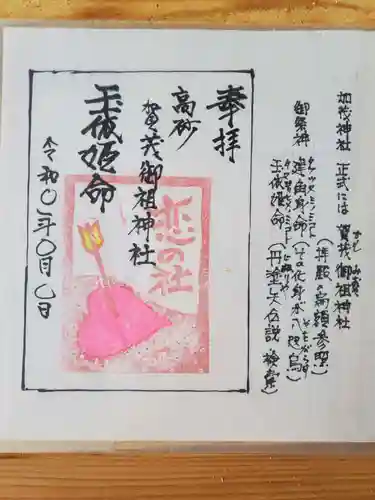 加茂神社 正式には 賀茂御祖神社
(拝殿の扁額参照)
御祭神 建角身命(その化身が八咫烏)
玉依姫命(丹塗矢伝説 検索)
奉拝
高砂
賀茂御祖神社
恋の社
玉依姫命
令和〇年〇月〇日